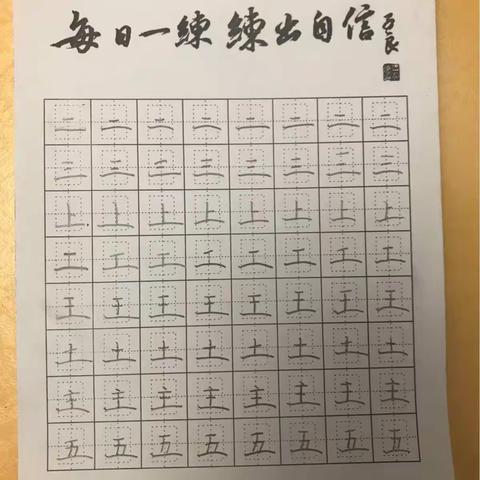 每日一练 练出自信
二二二二二二二二
三三三三三三三三
上上上上上上上上
工工工工工工工工
王王王王王王王王
土土土土土土土土
主主主主主主主主
五五五五五五五五